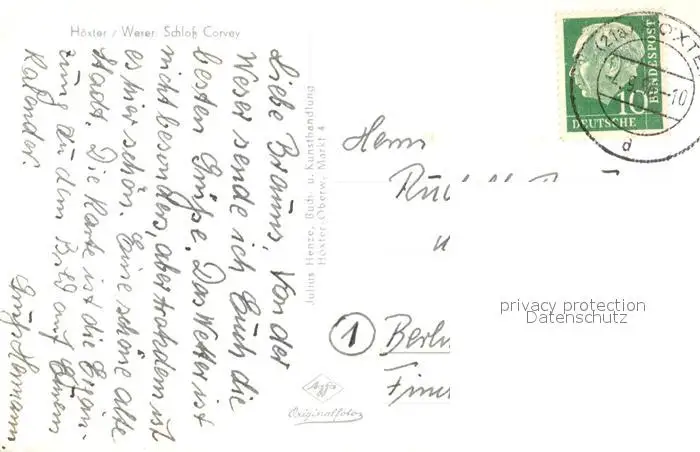 Höxter / Weser. Schloß Corvey
Liebe Brauns, Von der
Weser sende ich Euch die
besten Grüße. Das Wetter ist
nicht besonders, aber trotzdem ist
es hier schön. Eine schöne alte
Stadt. Die Karte ist die Ergän-
zung zu dem Bild auf Eurem
Kalender.
Gruß Hermann.
Julius Henze, Buch- u. Kunsthandlung
Höxter-Oberw., Markt 4
Agfa
Originalfoto
10
DEUTSCHE
BUNDESPOST
(21a) HÖXTE
d
Herrn
① Berlin
privacy protection
Datenschutz